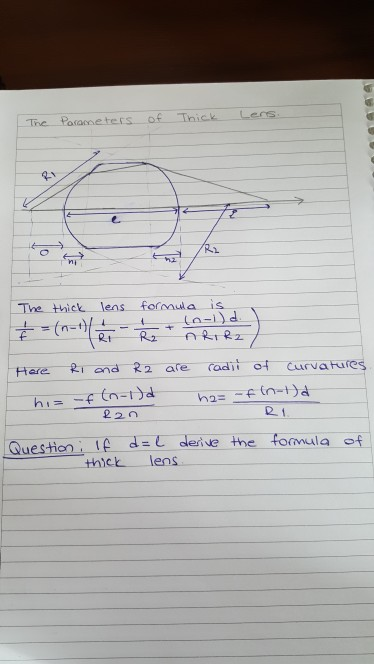 The Parameters of Thick Lens
R1
e
l
o
h1
h2
R2
The thick lens formula is
1/f = (n-1)(1/R1 - 1/R2 + (n-1)d/n R1R2)
Here R1 and R2 are radii of curvatures
h1 = -f(n-1)d/R2n h2 = -f(n-1)d/R1
Question: If d=l derive the formula of
thick lens